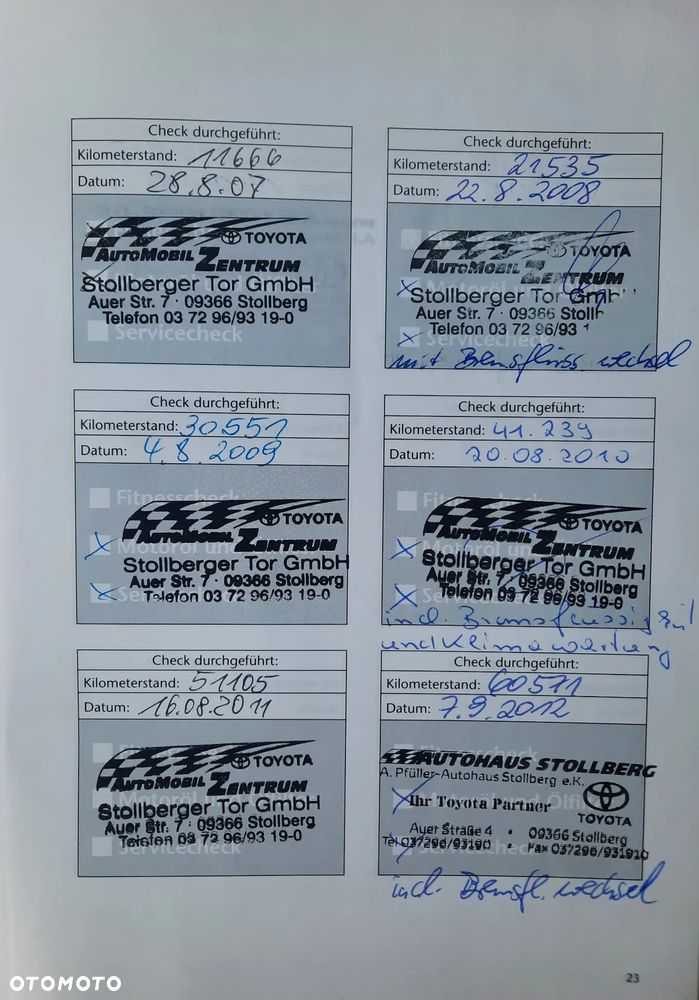 Check durchgeführt:
Kilometerstand: 11666
Datum: 28.8.07
TOYOTA
AUTOMOBIL ZENTRUM
Stollberger Tor GmbH
Auer Str. 7 · 09366 Stollberg
Telefon 03 72 96/93 19-0
Servicecheck
Check durchgeführt:
Kilometerstand: 21535
Datum: 22.8.2008
TOYOTA
AUTOMOBIL ZENTRUM
Stollberger Tor GmbH
Auer Str. 7 · 09366 Stollb
Telefon 03 72 96/93 1
Servicecheck
mit Bremsflüss. wechsel
Check durchgeführt:
Kilometerstand: 30551
Datum: 4.8.2009
Fitnesscheck
TOYOTA
Motoröl un
AUTOMOBIL ZENTRUM
Stollberger Tor GmbH
Auer Str. 7 · 09366 Stollberg
Telefon 03 72 96/93 19-0
Check durchgeführt:
Kilometerstand: 41.239
Datum: 20.08.2010
Fitnesscheck
TOYOTA
Motoröl un
AUTOMOBIL ZENTRUM
Stollberger Tor GmbH
Auer Str. 7 · 09366 Stollberg
Telefon 03 72 96/93 19-0
incl. Bremsflüssigkeit
und Klimawartung
Check durchgeführt:
Kilometerstand: 51105
Datum: 16.08.2011
TOYOTA
AUTOMOBIL ZENTRUM
Stollberger Tor GmbH
Auer Str. 7 · 09366 Stollberg
Telefon 03 72 96/93 19-0
Servicecheck
Check durchgeführt:
Kilometerstand: 60571
Datum: 7.9.2012
AUTOHAUS STOLLBERG
A. Pfüller-Autohaus Stollberg e.K.
Ihr Toyota Partner
TOYOTA
Auer Straße 4 • 09366 Stollberg
Tel 037296/93190 • Fax 037296/931910
incl. Bremsfl. wechsel
23
OTOMOTO